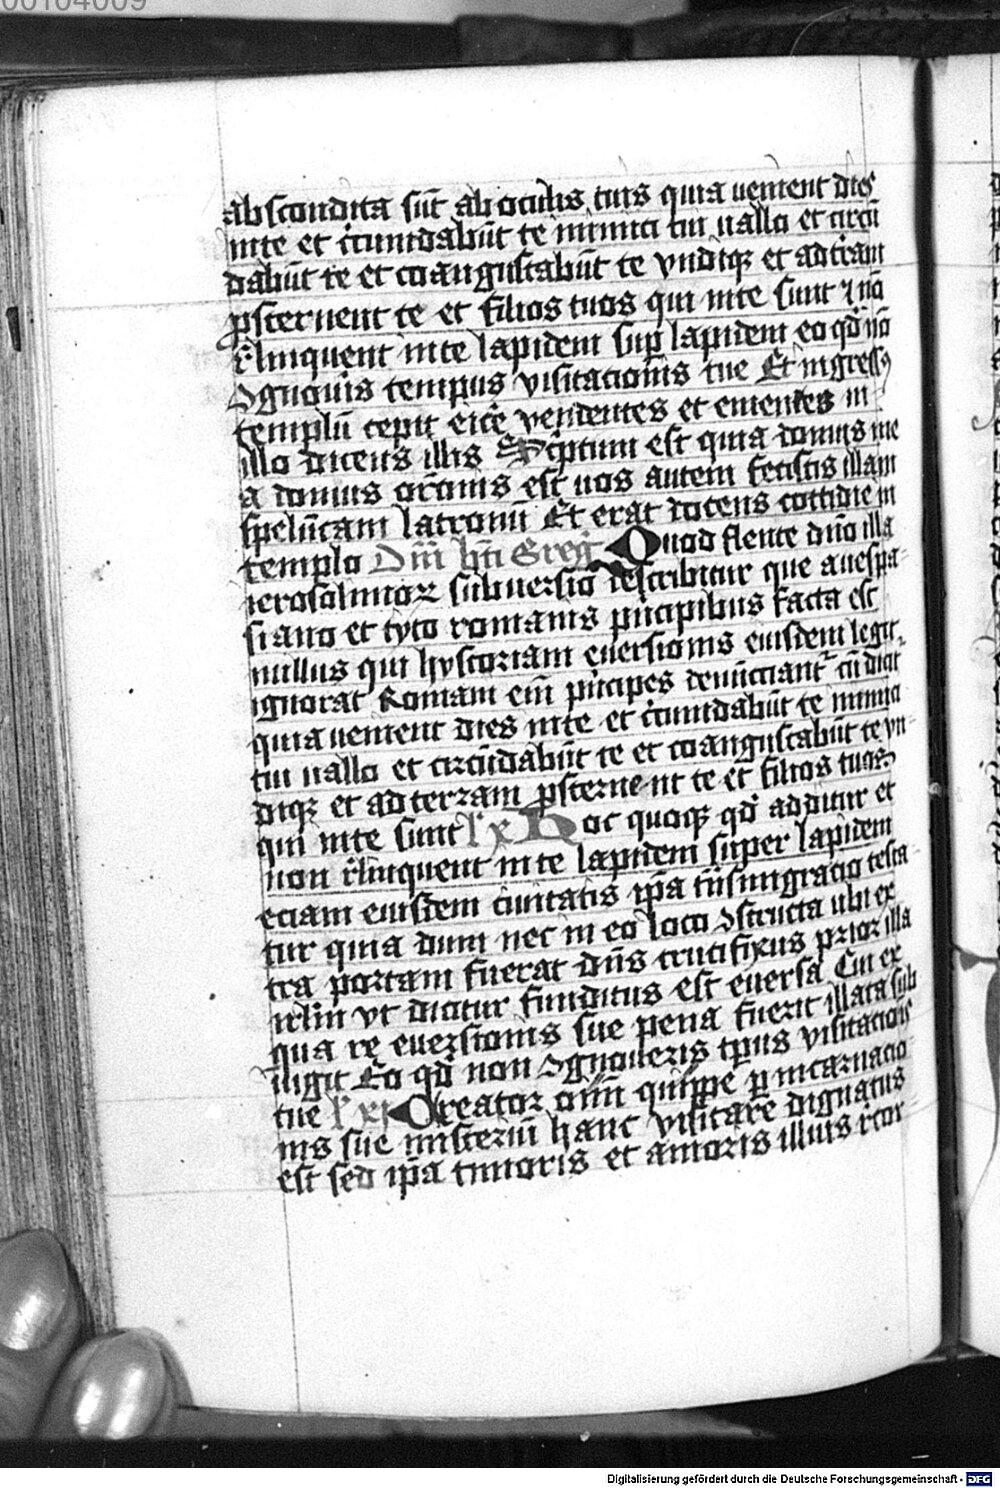 00104009
abscondita sūt ab oculis tuis quia venient dies
inte et circūdabūt te inimici tui uallo et circū
dabūt te et coangustabūt te vndiqꝫ et ad trāam
ꝓsternent te et filios tuos qui inte sunt ⁊ nō
relinquent inte lapidem suꝑ lapidem eo qđ nō
ꝯgnouīs tempus visitacionis tue Et ingressꝰ
templū cepit eice vendentes et ementes in
illo dicens illis Scͥptum est quia domus me
a domus orōnis est uos autem fecistis illam
speluncam latronū Et erat docens cottidie in
templo Om̄ bt̄i Greg̅ Quod flente dn̄o illa
ierosolimoꝝ subuersio describitur que a vespa-
siano et tyto romanis pͥncipibus facta est
nullus qui hystoriam euersionis eiusdem legit
ignorat Romani em̄ pͥncipes denūciantͬ cū dicit
quia uenient dies inte et circūdabūt te inimici
tui uallo et circūdabūt te et coangustabūt te vn-
diqꝫ et ad terram ꝓsternent te et filios tuos
qui inte sunt Hoc quoqꝫ qđ additur et
non relinquent inte lapidem super lapidem
eciam eiusdem ciuitatis ip̄a tn̄smigracio testa-
tur quia dum nec in eo loco ꝯstructa ubi ex
tra portam fuerat dn̄s crucifixus prior illa
irlm̄ vt dicitur funditus est euersa Cui ex
qua re euersionis sue pena fuerit illata sub
iugit Eo qđ non ꝯgnoueris tp̄us visitacionis
tue Creator om̄ quippe ꝑ incarnacio
nis sue misteriū hanc visitare dignatus
est sed ip̄a timoris et amoris illius recor-
Digitalisierung gefördert durch die Deutsche Forschungsgemeinschaft - DFG